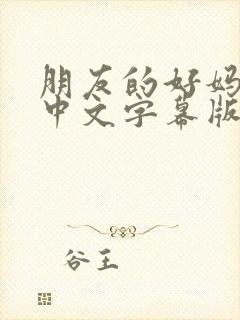 朋友的好妈
中文字幕版
谷王